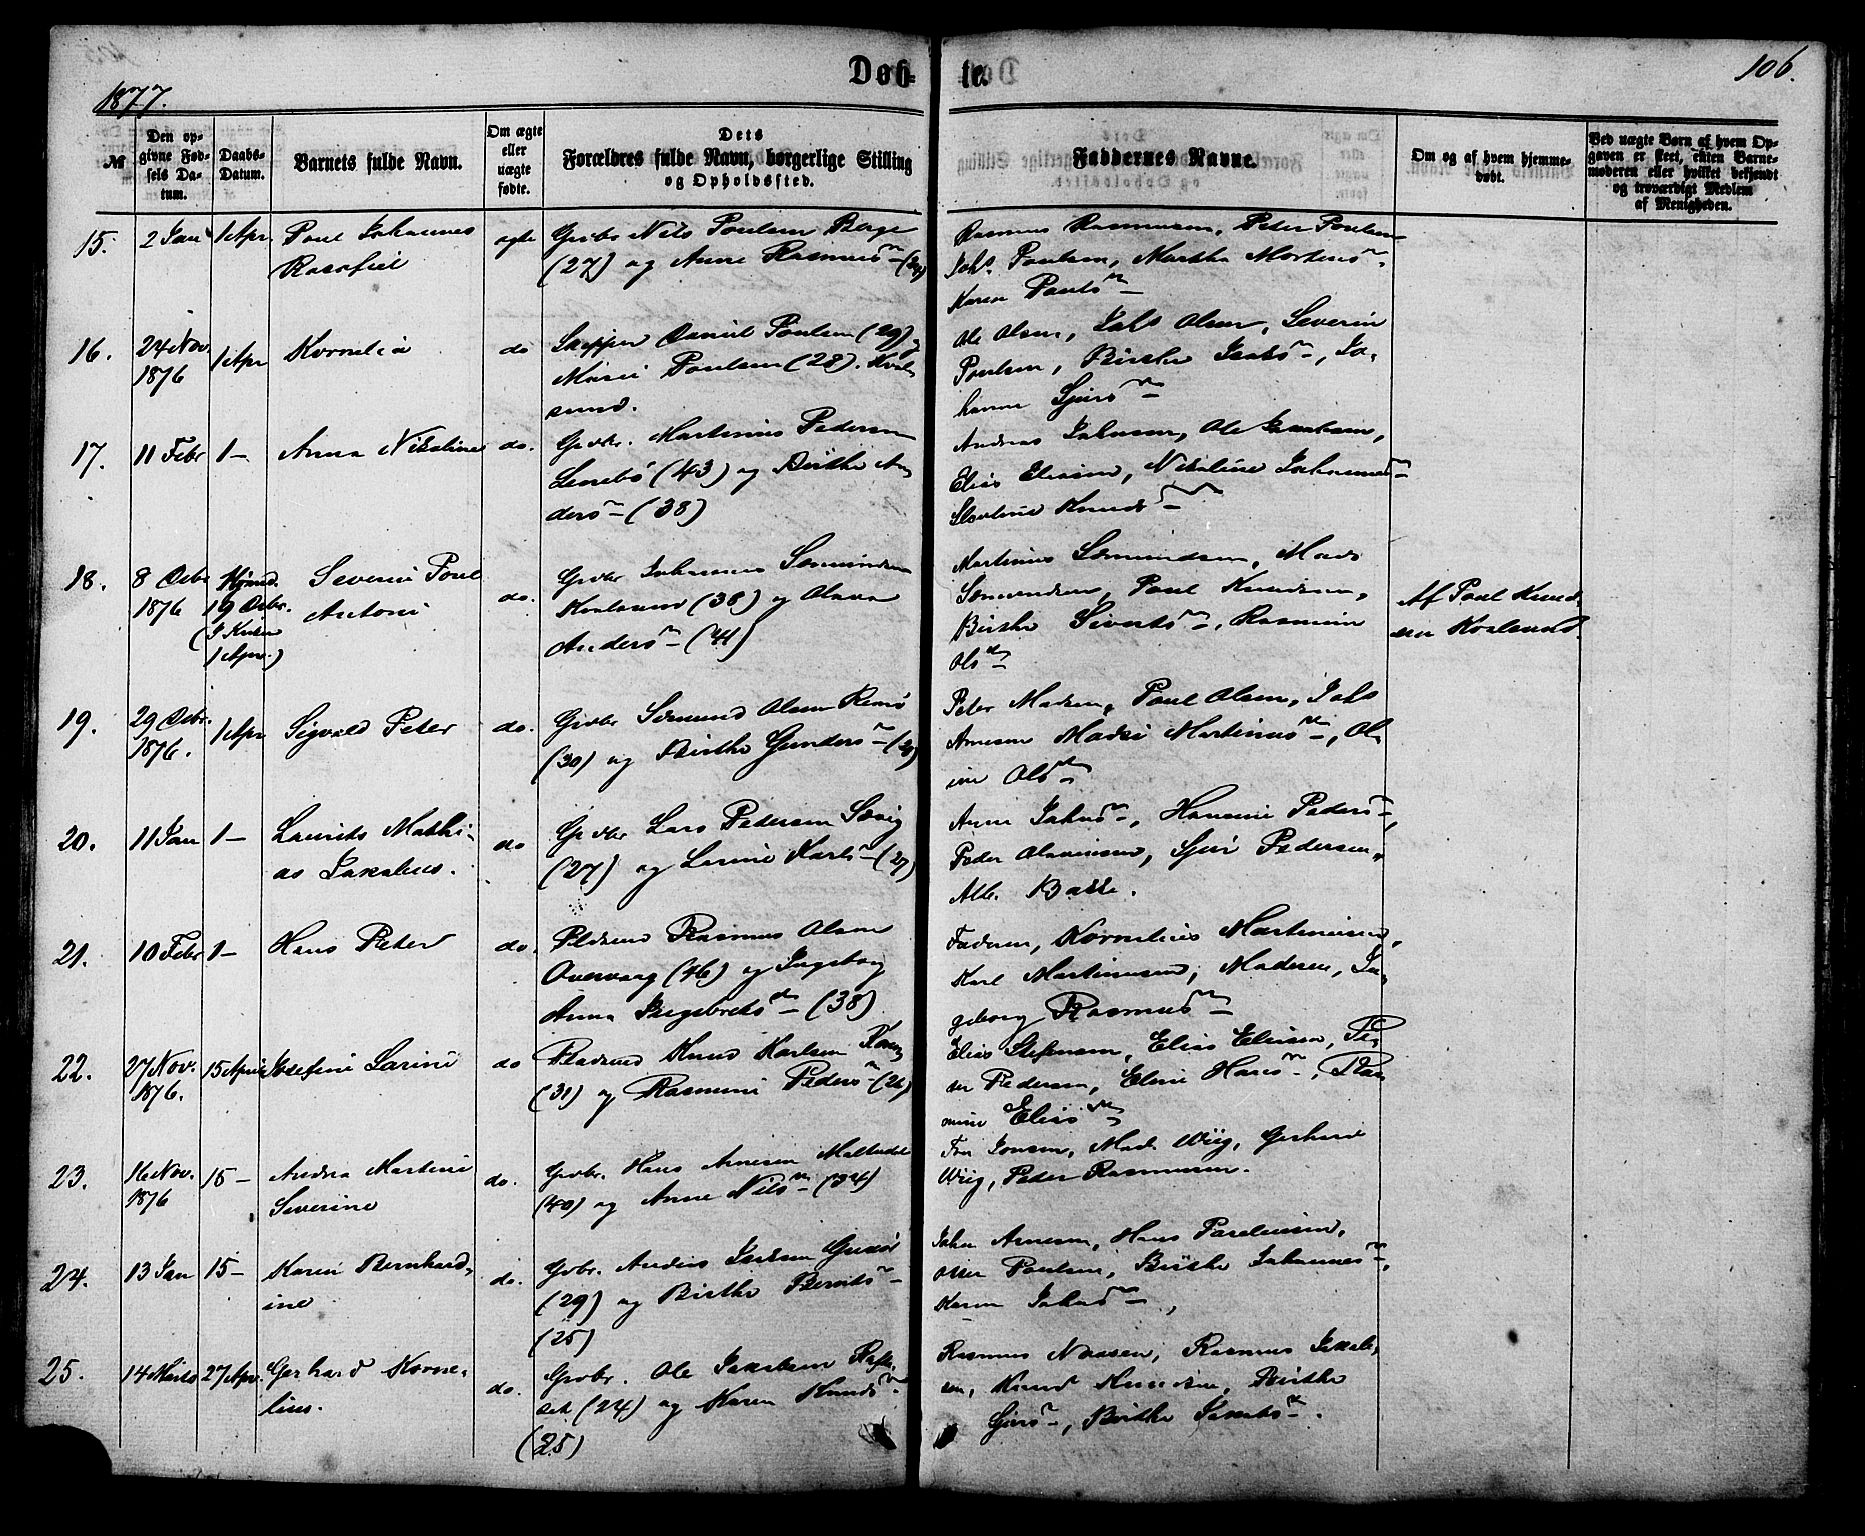 1877.
Døb-
te.
106.
№
Den op-
givne Fød-
sels Da-
tum.
Daabs-
Datum.
Barnets fulde Navn.
Om ægte
eller
uægte
fødte.
Dets
Forældres fulde Navn, borgerlige Stilling
og Opholdssted.
Faddernes Navne.
Om og af hvem hjemme-
døbt.
Ved uægte Børn af hvem Op-
gaven er skeet, enten Barne-
moderen eller hvilket bekjendt
og troværdigt Medlem
af Menigheden.
15.
2 Jan
1 Apr
Poul Johannes
ægte
Grbr Nils Poulsen
(27) og Anne Rasmusdn
Rasmus Rasmussen, Peter Poulsen
Johs. Poulsen, Martha Mortensdn
Karen Poulsdn
16.
24 Nov.
1876
1 Apr
Kornelia
do
Skipper Daniel Poulsen (29) og
Marie Poulsen (28). Kval-
sund.
Ole Olsen, Jak's Olsen, Severin
Poulsen, Birthe Jakobsdn, Jo-
hanne Sjursdn
17.
11 Febr
1 –
Anna Nikoline
do.
Grbr. Martinus Pedersen
(43) og Birthe An-
dersdn (38)
Andreas Johnsen, Ole Jakobsen,
Elias Eliasen, Nikoline Johannesdn
Knudsdn
18.
8 Debr
1876
Hjemd.
19 Debr.
(I Kirken
1 Apr.)
Severin Poul
Antoni
do.
Grbr Johannes Sæmundsen
Kvalsund (38) og Olava
Andersdn (41)
Martinus Sæmundsen, Mads
Sæmundsen, Poul Knudsen,
Birthe Sivertsdn, Rasmine
Olsdn
Af Poul Knud-
sen Kvalsund.
19.
29 Debr.
1876.
1 Apr
Sigvald Peter
do.
Grbr Sæmund Olsen Remø
(30) og Birthe Gundersdn
Peter Madsen, Poul Olsen, Jak's
Arnesen Madsi Martinusdn, Ol-
ine Olsdn
20.
11 Jan
1 –
Laurits Mathi-
as Jakobus.
do
Grbr Lars Pedersen Sævig
(27) og Larine Karlsdn (27)
Anne Jakosdn, Hansine Pedersdn,
Peder Olavusen, Sjur Pedersen,
21.
10 Febr
1 –
Hans Peter
do.
Pldsmd Rasmus Olsen
(46) og Ingeborg
Anna Ingebretsdn (38)
Faderen, Kornelius Martinusen,
Karl Martinusen, Moderen, In-
geborg Rasmusdn
22.
27 Nov.
1876.
15 April
Josefine Larine
do
Pladsmd Knud Karlsen
(31) og Rasmine Pedersdn (26)
Elias Steffensen, Elias Eliasen, Pe-
der Pedersen, Eline Hansdn, Ras-
mine Eliasdn
23.
16 Nov.
1876
15 –
Andrea Martine
Severine
do.
Grbr. Hans Arnesen
(40) og Anne Nilsdn (34)
Fru Jonsen, Mad. Wiig, Gerhard
Wiig, Peder Rasmussen.
24.
13 Jan
15 –
Karen Bernhard-
ine
do.
Grbr. Anders
(29) og Birthe Berntsdn
(25)
John Arnesen, Hans Paulinusen,
Poulsen, Birthe Johannesdn,
Karen Johnsdn,
25.
14 Marts
27 Apr.
Gerhard Korne-
lius.
do.
Grbr. Ole Jakobsen
(24) og Karen Knudsdn
(25)
Rasmus Rasmus Jakob-
sen, Knud Knudsen, Birthe
Sjursdn, Birthe Jakobsdn.